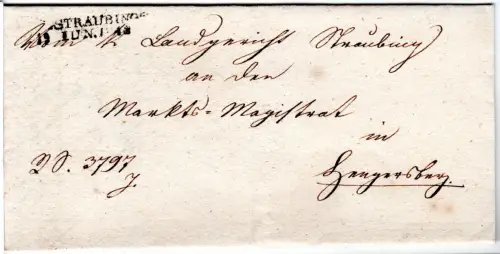 STRAUBING
JUN.
Vom k Landgericht Straubing
an den
Markts-Magistrat
in
Hengersberg.
3797